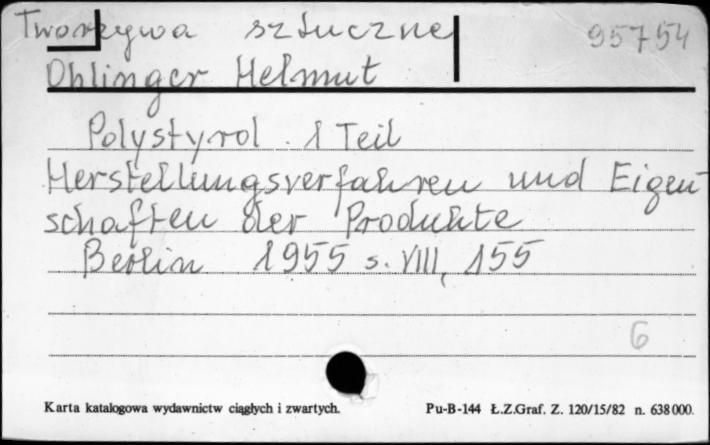 Tworzywa sztuczne 95754
Ohlinger Helmut
Polystyrol. 1 Teil
Herstellungsverfahren und Eigen-
schaften der Produkte
Berlin 1955 s. VIII, 155
6
Karta katalogowa wydawnictw ciągłych i zwartych. Pu-B-144 Ł.Z.Graf. Z. 120/15/82 n. 638000.